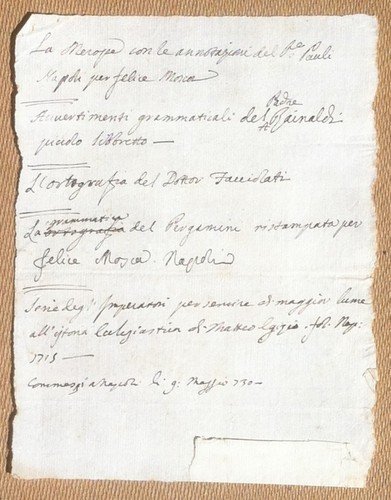 La Merope con le annotazioni del P.re Pauli
Napoli per felice Mosca
Avvertimenti grammaticali del Padre Rainaldi
picciolo libbretto —
L'ortografia del Dottor Facciolati
La ortografia grammatica del Pergamini ristampata per
felice Mosca. Napoli
Serie degl' Imperatori per servire di maggior lume
all'istoria Eclesiastica di Matteo Egizio. fol. Nap.
1715 —
Commessi a Napoli li 9: Maggio 730 —